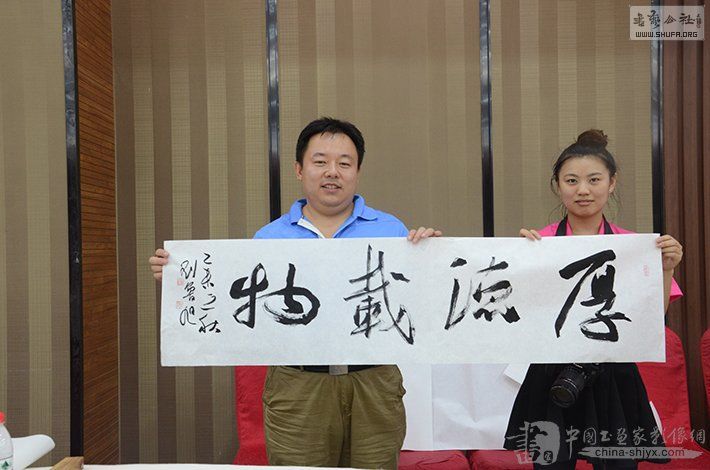 書藝公社
WWW.SHUFA.ORG
厚德載物
乙未之秋
刘魯旭
中國书画家影像網
china-shjyx.com